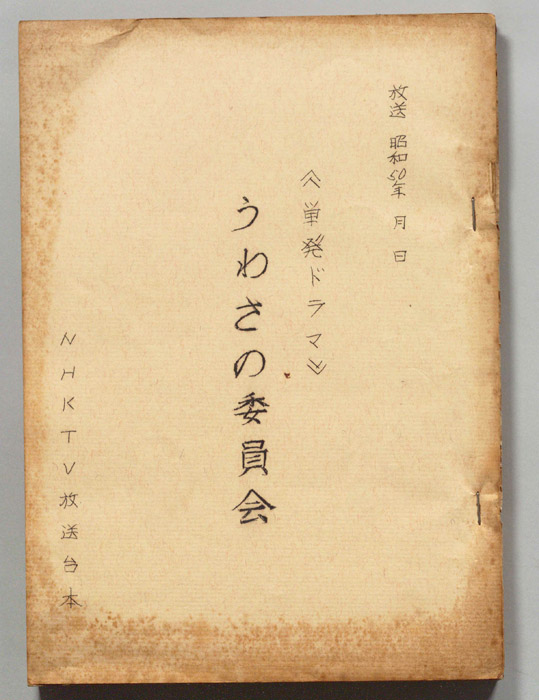 放送 昭和50年 月 日
《単発ドラマ》
うわさの委員会
NHKTV放送台本